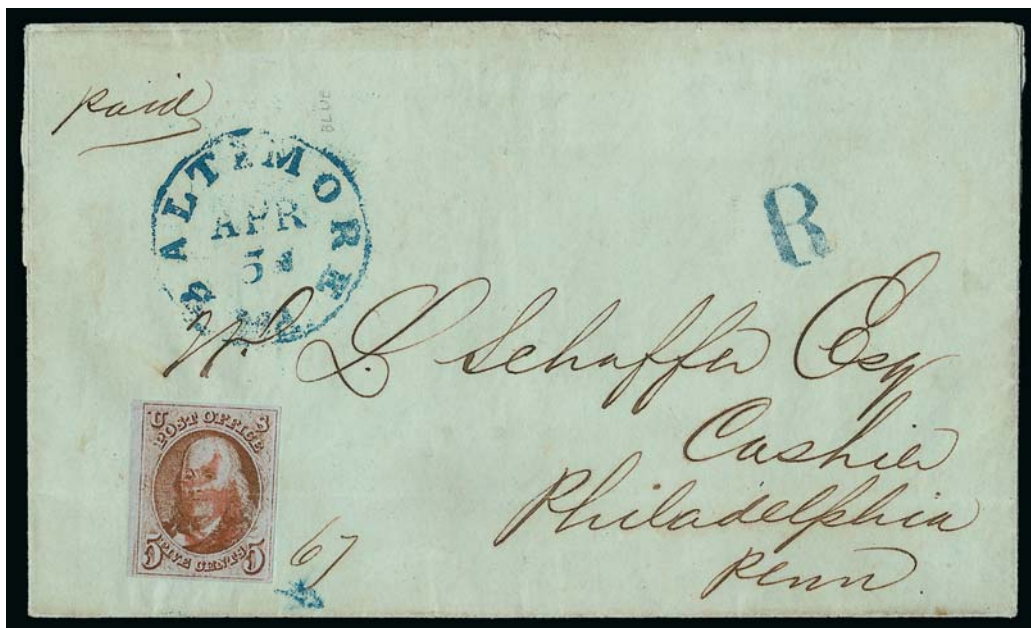 paid
BLUE
BALTIMORE
APR
5
Md
R
W. L. Schaffer Esq
Cashier
Philadelphia
Penn
U S
POST OFFICE
5 FIVE CENTS 5
67